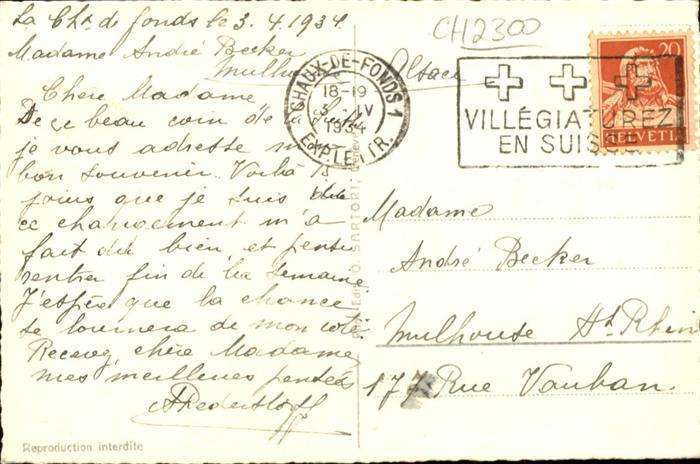 La Chx de fonds le 3.4.1934
Madame André Becker
Mulho
Alsace
Chère Madame
De ce beau coin de la
je vous adresse
bon souvenir. Voilà 13
jours que je suis
ce changement m'a
fait du bien, et pense
rentrer fin de la semaine
J'espère que la chance
se tournera de mon côté
Recevez, chère Madame,
mes meilleures pensées
CH2300
CHAUX-DE-FONDS 1
18-19
3. IV
1934
EXP. LETTR.
VILLÉGIATUREZ
EN SUISSE
20
HELVETIA
Madame
André Becker
Mulhouse Ht Rhin
177 Rue Vauban.
SARTORI, Genève
Reproduction interdite